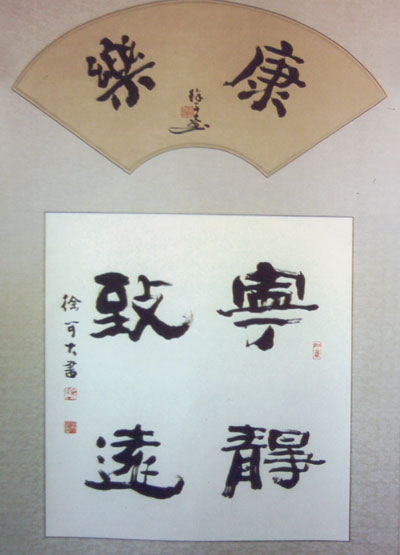 康樂
寧靜
致遠
徐可大書